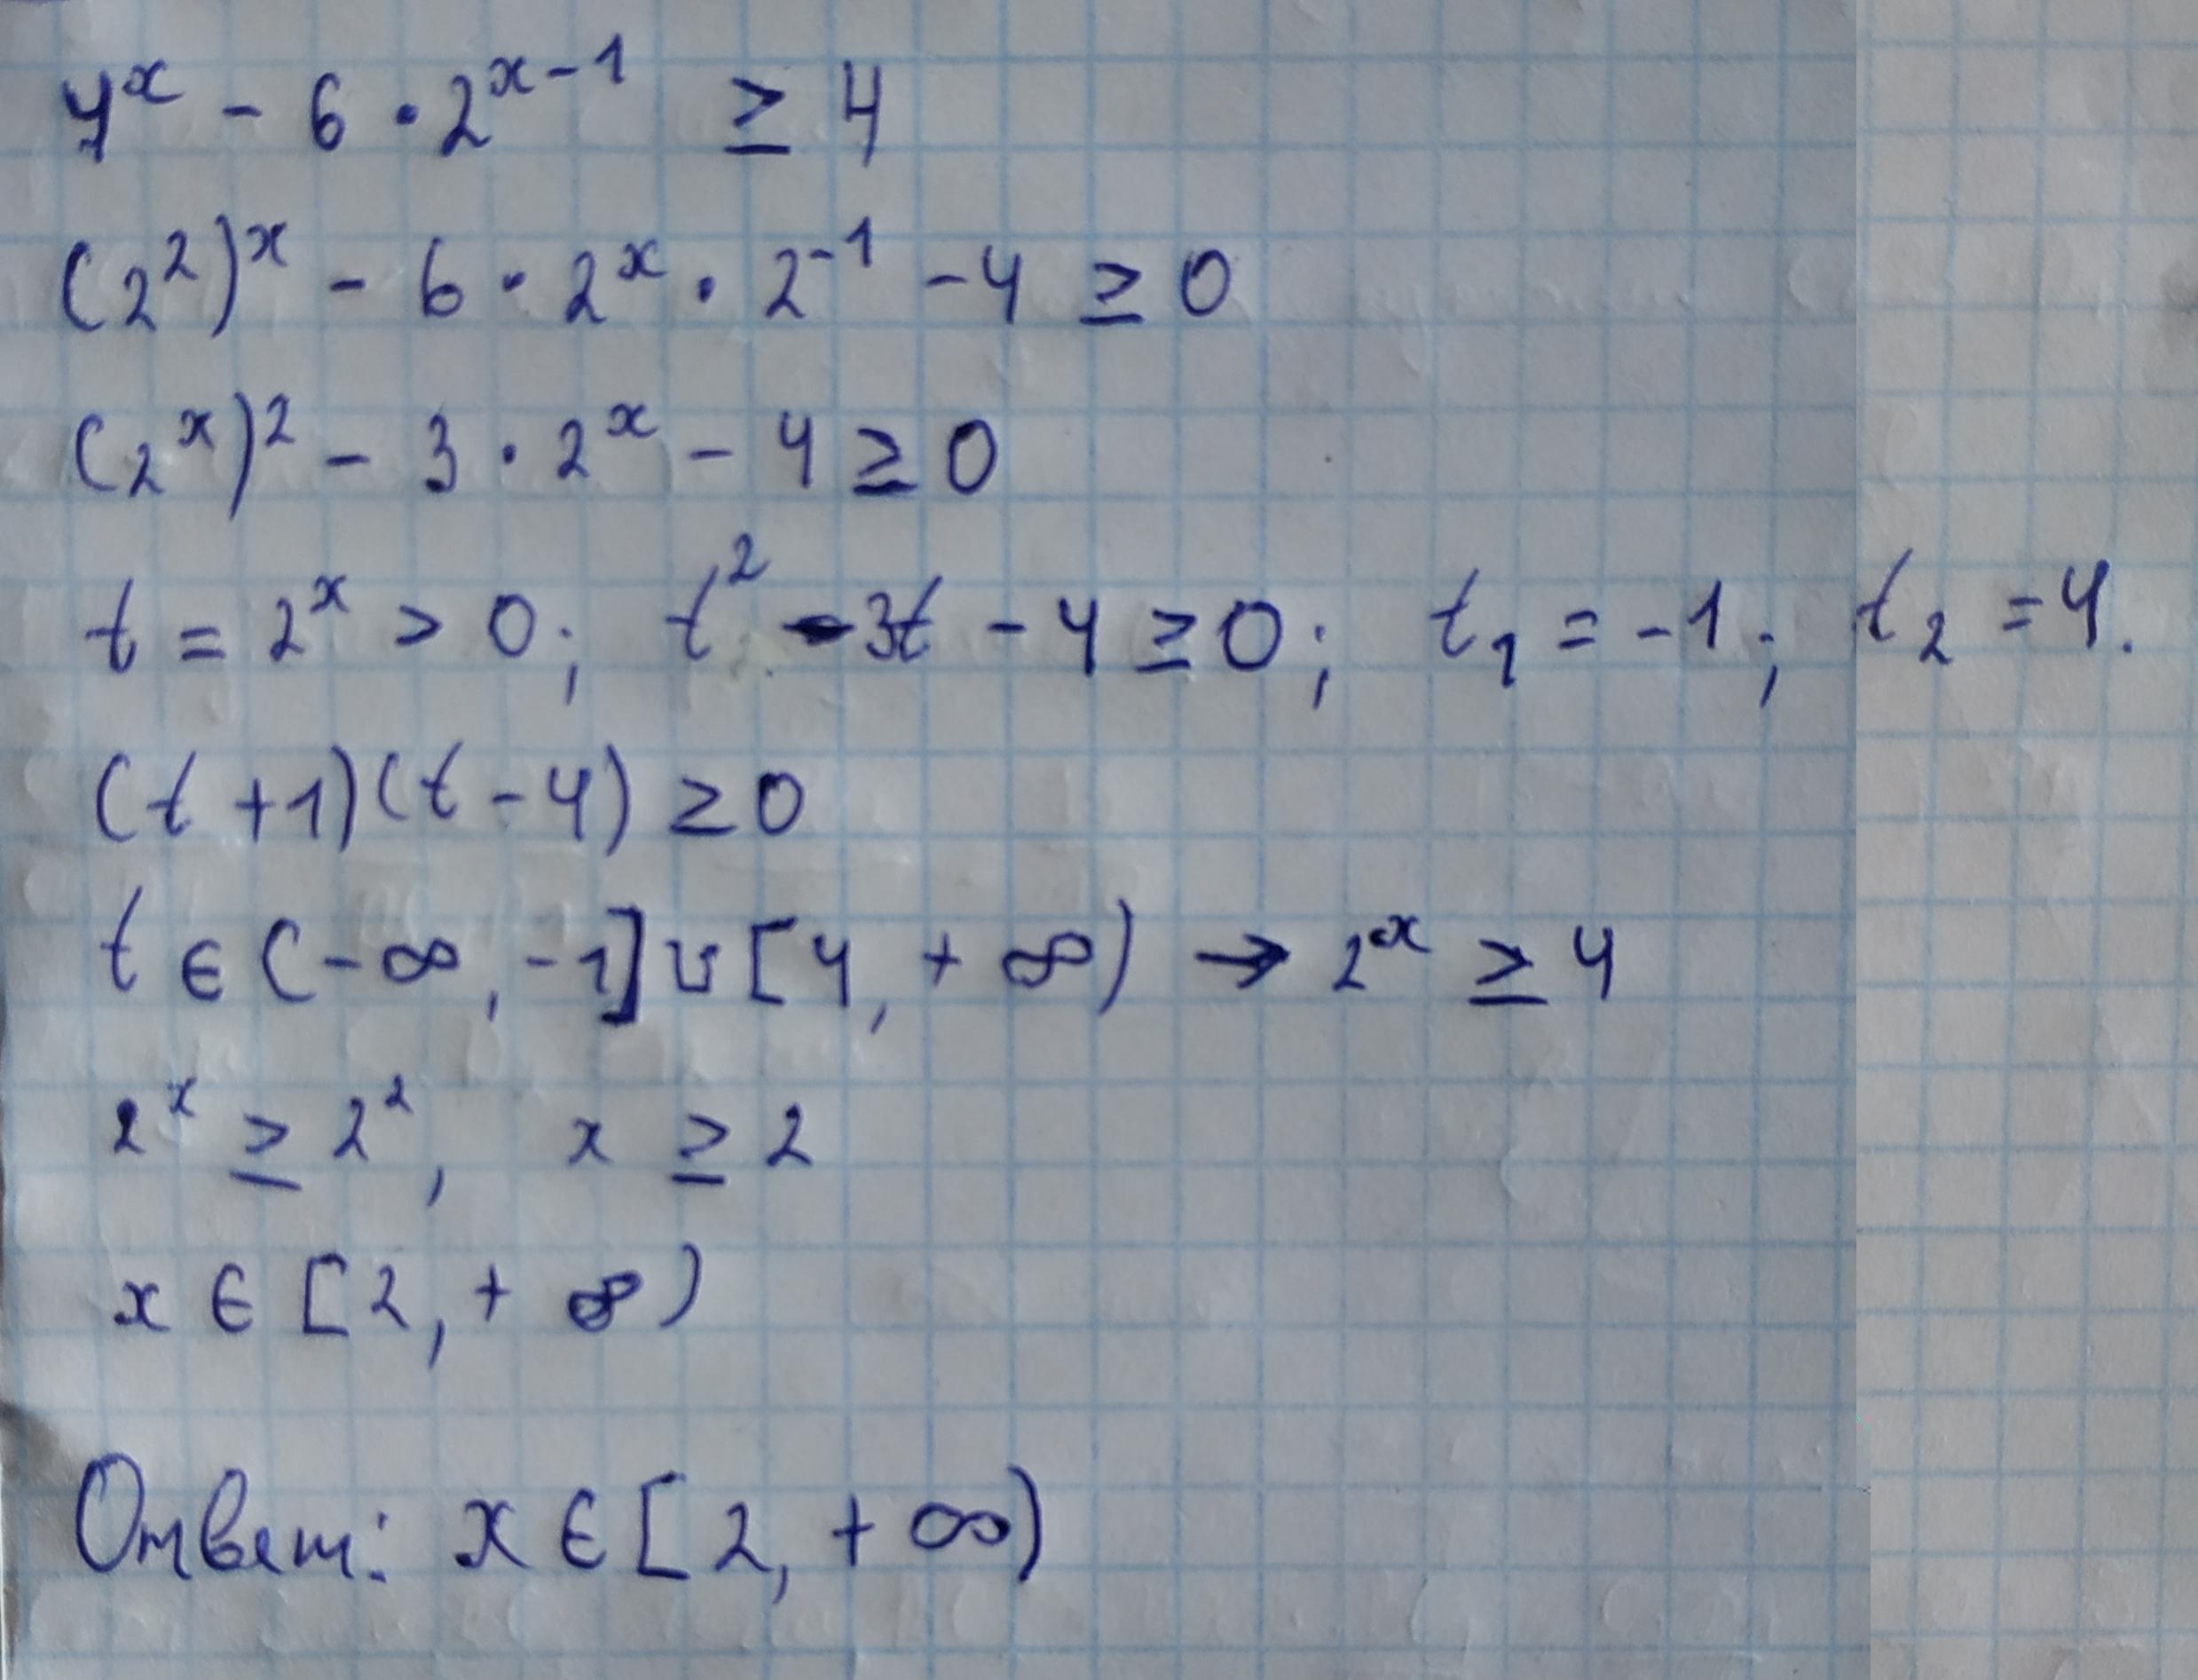 4ˣ - 6 · 2ˣ⁻¹ ≥ 4
(2²)ˣ - 6 · 2ˣ · 2⁻¹ - 4 ≥ 0
(2ˣ)² - 3 · 2ˣ - 4 ≥ 0
t = 2ˣ > 0; t² - 3t - 4 ≥ 0; t₁ = -1; t₂ = 4.
(t + 1)(t - 4) ≥ 0
t ∈ (-∞, -1] ∪ [4, +∞) → 2ˣ ≥ 4
2ˣ ≥ 2², x ≥ 2
x ∈ [2, +∞)
Ответ: x ∈ [2, +∞)